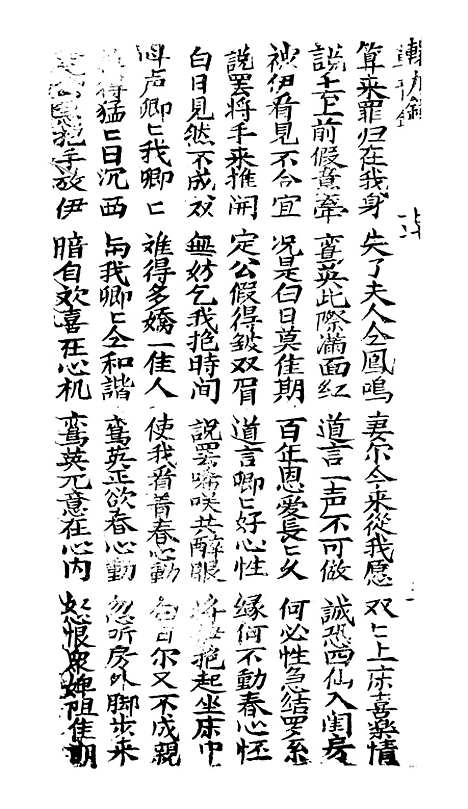 算来罪归在我身 失了夫人仝鳳鳴 妻尔今来從我愿 双〻上床喜樂情
説 上前假意牽 鸾英此際滿面紅 道言一声不可做 誠恐四仙入闺房
被伊看見不合宜 况是白日莫佳期 百年恩爱長〻久 何必性急结罗系
説罢将手来推開 定公假得皱双眉 道言卿〻好心性 缘何不動春心怪
白日見然不成双 無妨乞我抱時间 説罢嘻咲共醉眼 将 抱起坐床中
叫声卿〻我卿〻 谁得多嬌一佳人 使我看着春心動 尔又不成親
得猛〻日沉西 与我卿〻仝和諧 鸾英正欲春心動 忽听房外脚步来
抱手放伊 暗自欢喜在心机 鸾英元意在心内 怒恨衆婢阻佳期